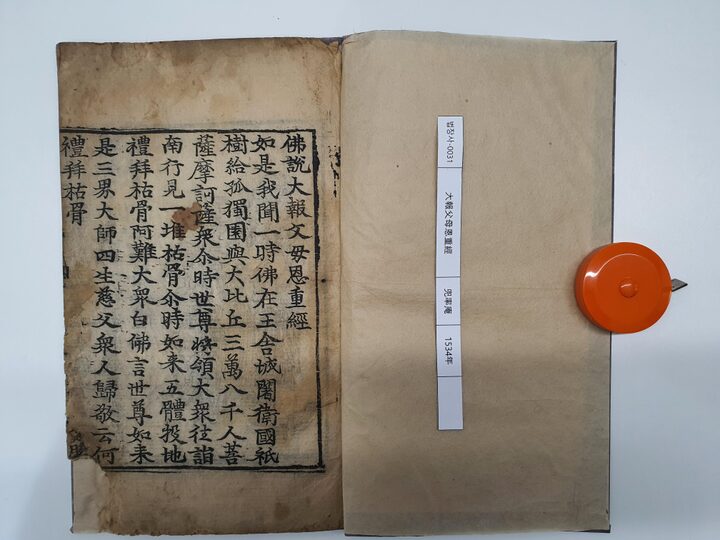 佛說大報父母恩重經
如是我聞一時佛在王舍城闍衛國祇
樹給孤獨園與大比丘三萬八千人菩
薩摩訶薩衆尒時世尊將領大衆往詣
南行見一堆枯骨尒時如来五體投地
禮拜枯骨阿難大衆白佛言世尊如来
是三界大師四生慈父衆人歸敬云何
禮拜枯骨
법장사-0031
大報父母恩重經
兜率庵
1534年